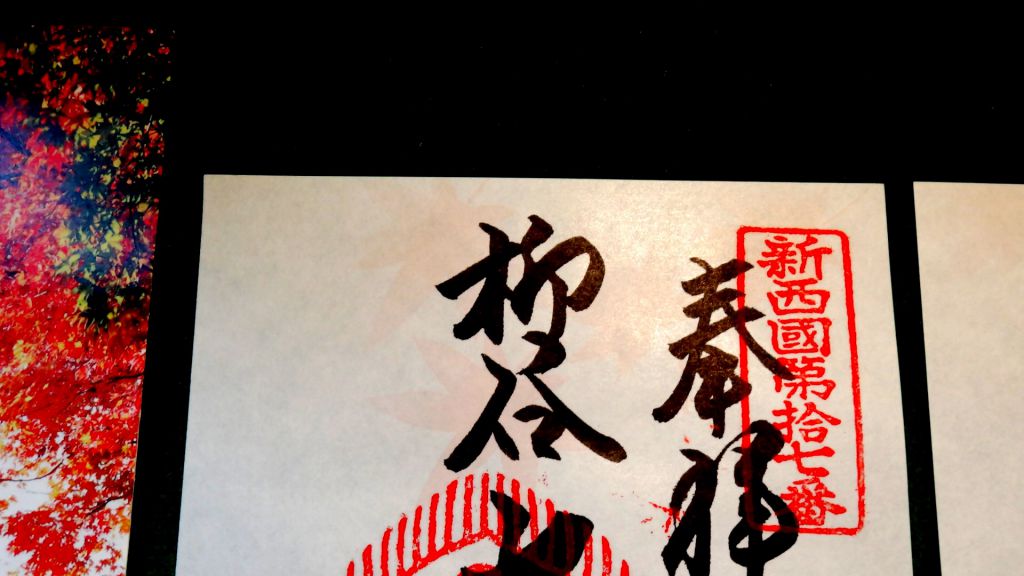 新西國第拾七番
奉拝
柳谷